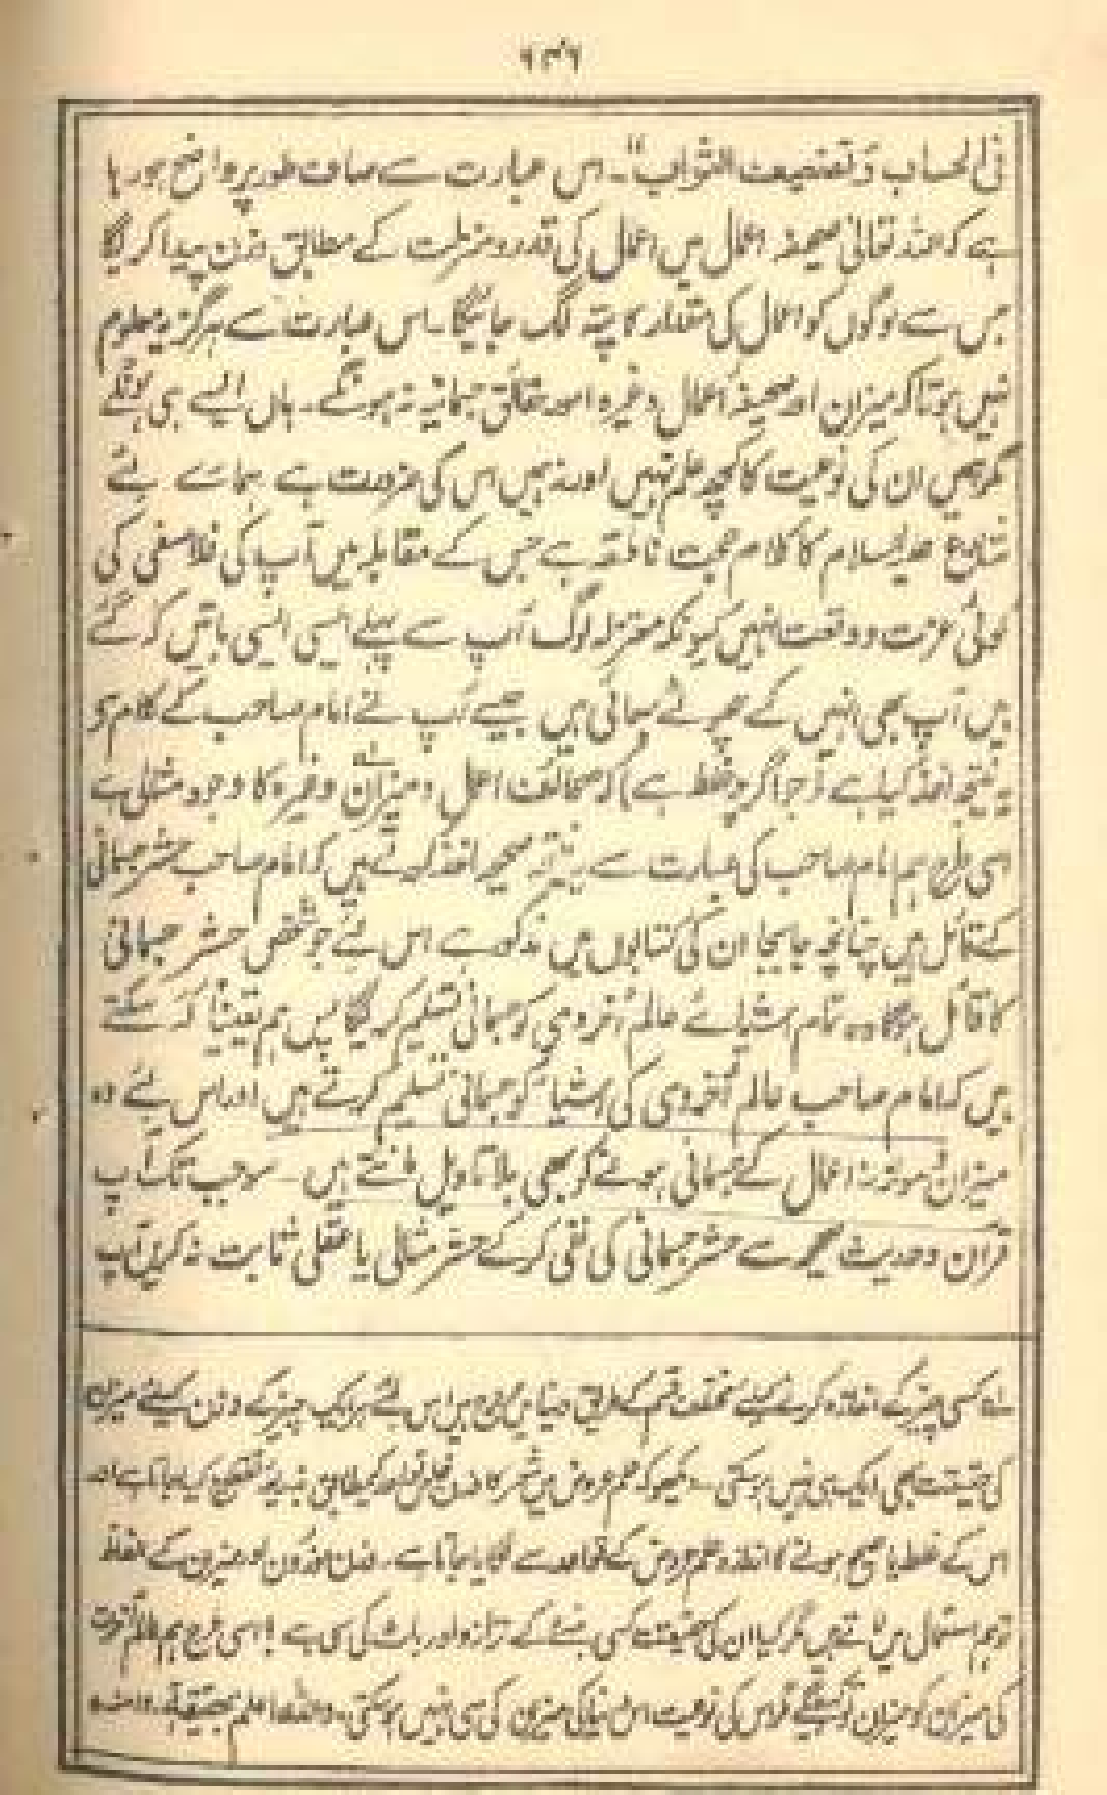 ۶۴۶
فی الحساب وتضعیف الثواب"۔ اس عبارت سے صاف طور پر واضح ہو رہا
ہے کہ اللہ تعالیٰ صحیفہ اعمال میں اعمال کی قدر و منزلت کے مطابق وزن پیدا کریگا
جس سے لوگوں کو اعمال کی مقدار کا پتہ لگ جائیگا۔ اس عبارت سے ہرگز یہ معلوم
نہیں ہوتا کہ میزان اور صحیفہ اعمال وغیرہ امور حقائق جسمانیہ نہ ہونگے۔ ہاں ایسے ہی ہونگے
مگر ہمیں ان کی نوعیت کا کچھ علم نہیں اور نہ ہمیں اس کی ضرورت ہے ہمارے لئے
شارع علیہ السلام کا کلام حجت ناطقہ ہے جس کے مقابلہ میں آپ کی فلاسفی کی
کوئی عزت و وقعت نہیں کیونکہ معتزلہ لوگ آپ سے پہلے ایسی ایسی باتیں کر گئے
ہیں آپ بھی انہیں کے چھوٹے بھائی ہیں جیسے آپ نے امام صاحب کے کلام سے
یہ نتیجہ اخذ کیا ہے (جو اگرچہ غلط ہے) کہ صحائف اعمال و میزان وغیرہ کا وجود مثالی ہے
اسی طرح ہم امام صاحب کی عبارت سے یہ نتیجہ صحیحہ اخذ کرتے ہیں کہ امام صاحب حشر جسمانی
کے قائل ہیں چنانچہ جابجا ان کی کتابوں میں مذکور ہے اس لئے جو شخص حشر جسمانی
کا قائل ہوگا وہ تمام اشیائے عالم اخروی کو جسمانی تسلیم کریگا پس ہم یقیناً کہہ سکتے
ہیں کہ امام صاحب عالم اُخروی کی اشیاء کو جسمانی تسلیم کرتے ہیں اور اس لئے وہ
میزان و موازنہ اعمال کے جسمانی ہونے کو بھی بلا تاویل مانتے ہیں۔ سو جب تک آپ
قرآن و حدیث صحیح سے حشر جسمانی کی نفی کرکے حشر مثالی یا عقلی ثابت نہ کریں آپ
لہ کسی چیز کے اندازہ کرنے کیلئے مختلف قسم کے طریق دنیا میں رائج ہیں اس لئے ہر ایک چیز کے وزن کیلئے میزان
کی حقیقت بھی ایک ہی نہیں ہو سکتی۔ دیکھو کہ علم عروض میں شعر کا وزن کیا جاتا ہے اور
اس کے غلط یا صحیح ہونے کا اندازہ علم عروض کے قواعد سے لگایا جاتا ہے۔ وزن موزون اور میزان کے الفاظ
تو ہم استعمال میں لاتے ہیں مگر کیا ان کی حقیقت کسی بنئے کے ترازو اور باٹ کی سی ہے! اسی طرح ہم عالم آخرت
کی میزان کو میزان تو کہینگے مگر اس کی نوعیت اس دنیا کی میزان کی سی نہیں ہو سکتی۔ واللہ اعلم بحقیقۃ